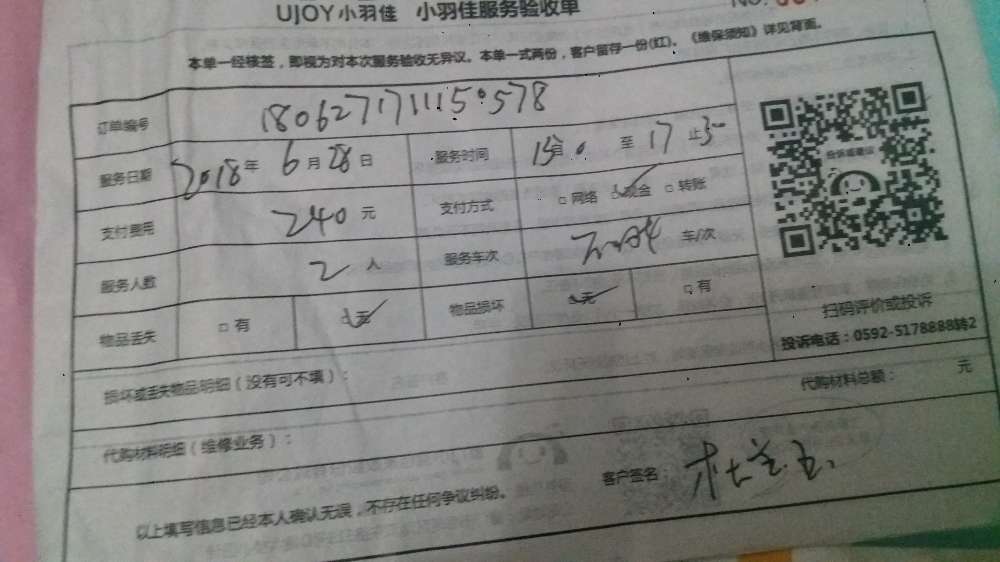 UJOY小羽佳 小羽佳服务验收单
NO.
本单一经核签，即视为对本次服务验收无异议。本单一式两份，客户留存一份(红)。《维保须知》详见背面。
订单编号 180627171115578
服务日期 2018年 6月 28日 服务时间 至 17 止30
支付费用 240 元 支付方式 □ 网络 ☑ 现金 □ 转账
服务人数 2 人 服务车次 车/次
物品丢失 □ 有 ☑ 无 物品损坏 ☑ 无 □ 有
投诉或建议
扫码评价或投诉
投诉电话：0592-5178888转2
损坏或丢失物品明细（没有可不填）：
代购材料明细（维修业务）：
代购材料总额： 元
客户签名：
以上填写信息已经本人确认无误，不存在任何争议纠纷。